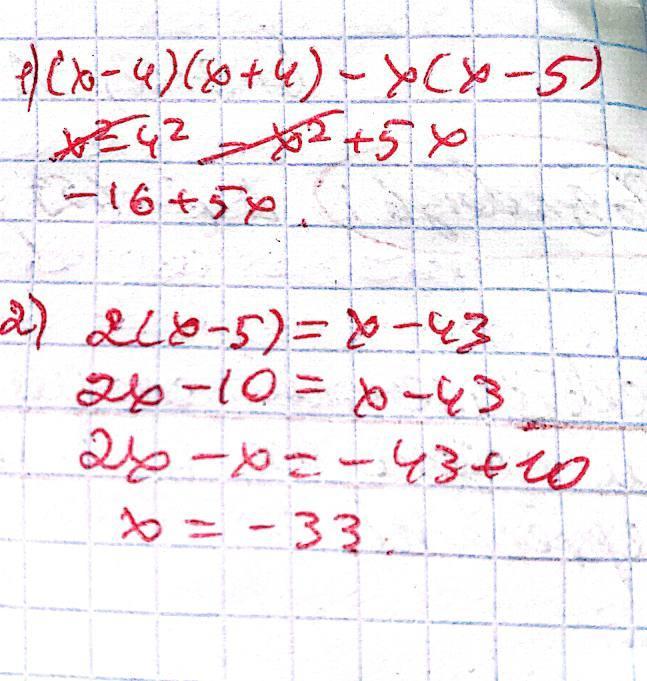 1) (x-4)(x+4) - x(x-5)
x² - 4² - x² + 5x
-16+5x.
2) 2(x-5) = x-43
2x-10 = x-43
2x - x = -43+10
x = -33.